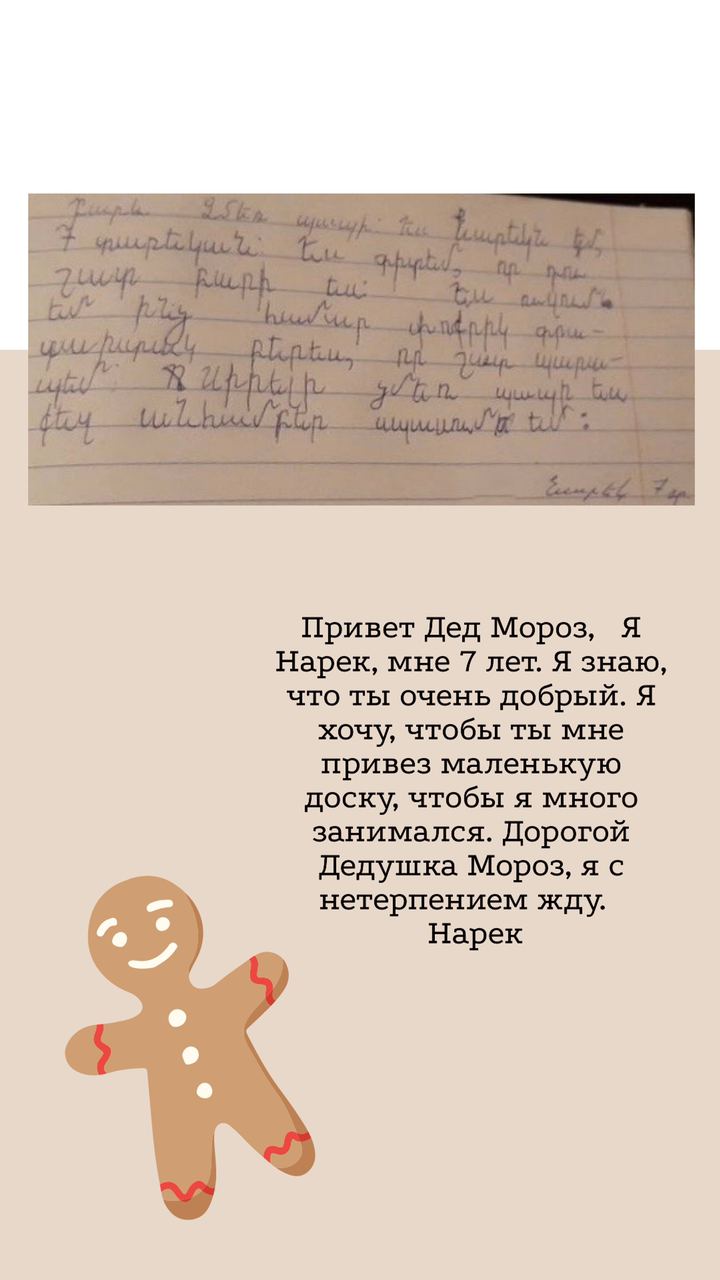 Բարև Ձմեռ պապի: Ես Նարեկն եմ,
7 տարեկան: Ես գիտեմ, որ դու
շատ բարի ես: Ես ուզում
եմ ինձ համար փոքրիկ գրա-
տախտակ բերես, որ շատ պարա-
պեմ: Սիրելի ձմեռ պապի ես
քեզ անհամբեր սպասում եմ:
Նարեկ 7 տ
Привет Дед Мороз, Я
Нарек, мне 7 лет. Я знаю,
что ты очень добрый. Я
хочу, чтобы ты мне
привез маленькую
доску, чтобы я много
занимался. Дорогой
Дедушка Мороз, я с
нетерпением жду.
Нарек